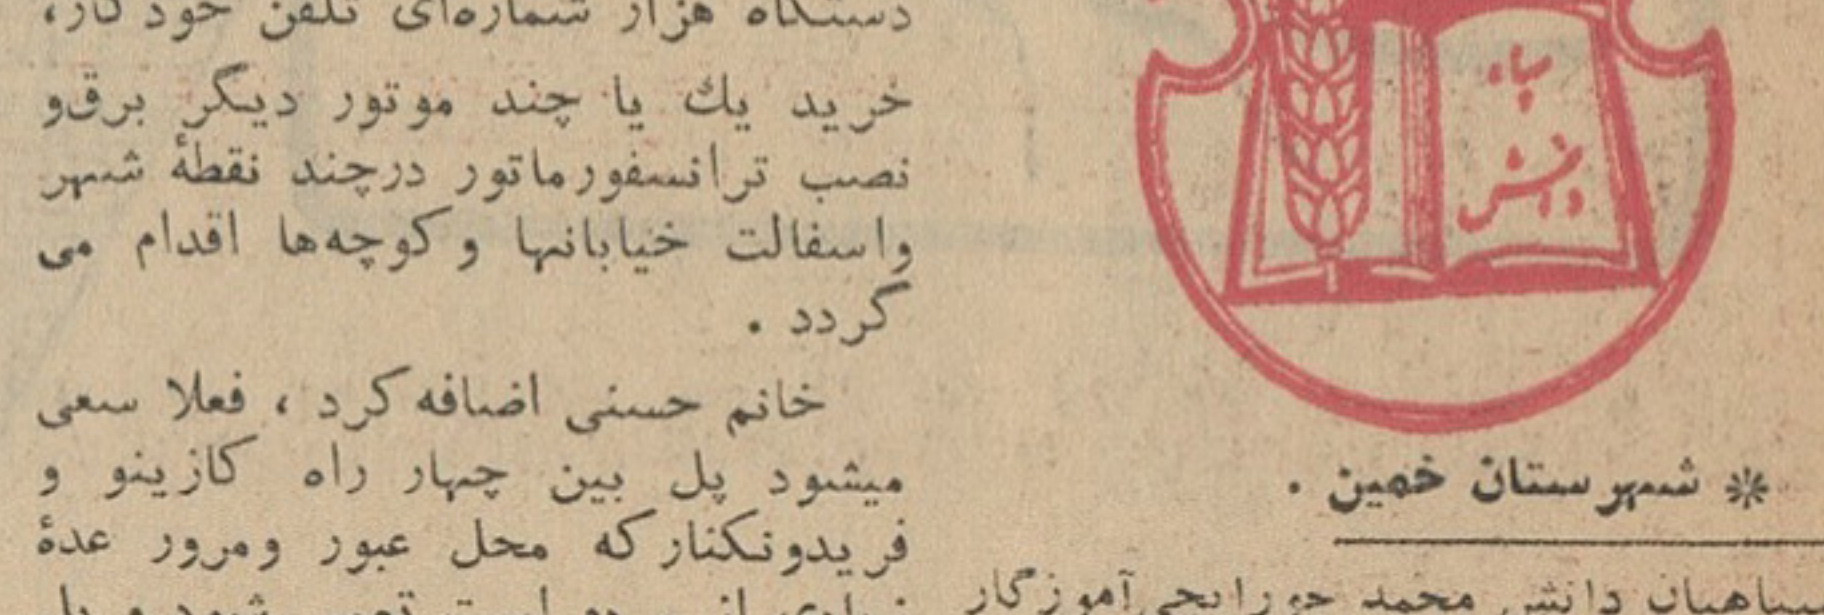 سپاه
دانش
* شهرستان خمین .
سپاهیان دانش محمد آموزگار
دستگاه هزار شماره‌ای تلفن خودکار،
خرید یك یا چند موتور دیگر برق‌و
نصب ترانسفورماتور درچند نقطهٔ شهر
واسفالت خیابانها وکوچه‌ها اقدام می
گردد .
خانم حسنی اضافه‌کرد ، فعلا سعی
میشود پل بین چهار راه کازینو و
فریدونکنارکه محل عبور ومرور عدهٔ